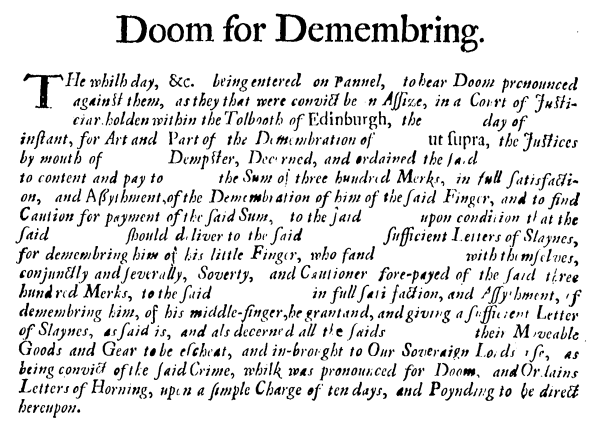 Doom for Demembring.
THe whilh day, &c. being entered on Pannel, to hear Doom pronounced
against them, as they that were convict be n Assize, in a Court of Justi-
ciar. holden within the Tolbooth of Edinburgh, the day of
instant, for Art and Part of the Demembration of ut supra, the Justices
by mouth of Dempster, Decerned, and ordained the said
to content and pay to the Sum of three hundred Merks, in full satisfacti-
on, and Assythment, of the Demembration of him of the said Finger, and to find
Caution for payment of the said Sum, to the said upon condition that the
said should deliver to the said sufficient Letters of Slaynes,
for demembring him of his little Finger, who fand with themselves,
conjunctly and severally, Soverty, and Cautioner fore-payed of the said three
hundred Merks, to the said in full satisfaction, and Assythment, of
demembring him, of his middle-finger, he grantand, and giving a sufficient Letter
of Slaynes, as said is, and als decerned all the saids their Moveable
Goods and Gear to be escheat, and in-brought to Our Soveraign Lords use, as
being convict of the said Crime, whilk was pronounced for Doom, and Ordains
Letters of Horning, upon a simple Charge of ten days, and Poynding to be direct
hereupon.